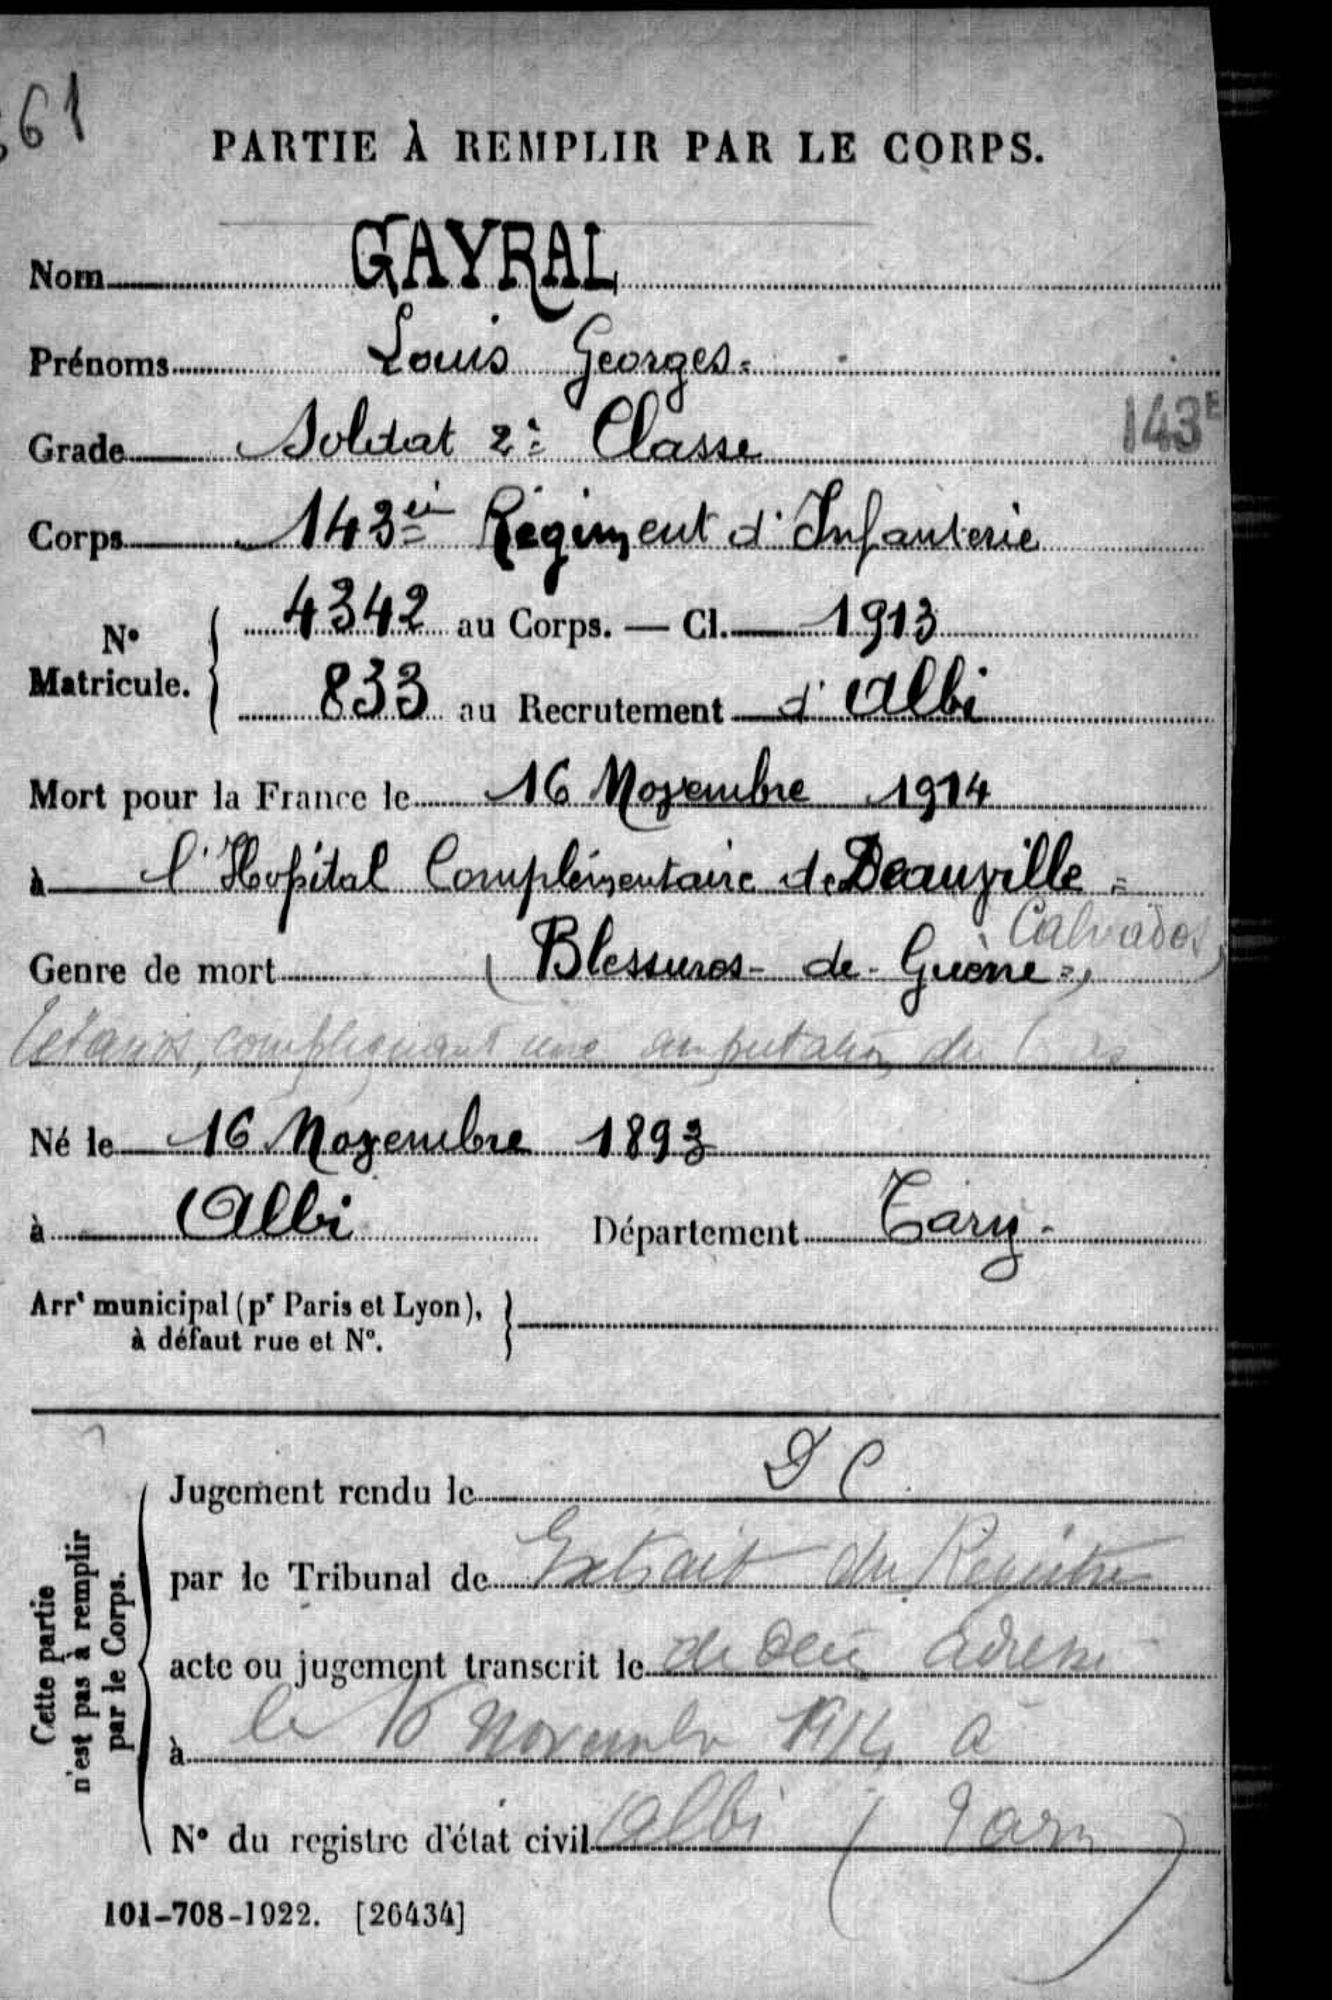 61
PARTIE À REMPLIR PAR LE CORPS.
Nom GAYRAL
Prénoms Louis Georges
Grade Soldat 2e Classe 143E
Corps 143ei Régiment d'Infanterie
No Matricule. { 4342 au Corps. — Cl. 1913
833 au Recrutement d'Albi
Mort pour la France le 16 Novembre 1914
à l'Hopital Complémentaire de Deauville
Calvados
Genre de mort (Blessures de Guerre)
tétanos, compliquant une amputation du
Né le 16 Novembre 1893
à Albi Département Tarn
Arrt municipal (pr Paris et Lyon), à défaut rue et No. }
Cette partie n'est pas à remplir par le Corps.
Jugement rendu le D C
par le Tribunal de Extrait du Registre
acte ou jugement transcrit le de décès adressé
à le 16 novembre 1914 à
No du registre d'état civil Albi (Tarn)
101-708-1922. [26434]